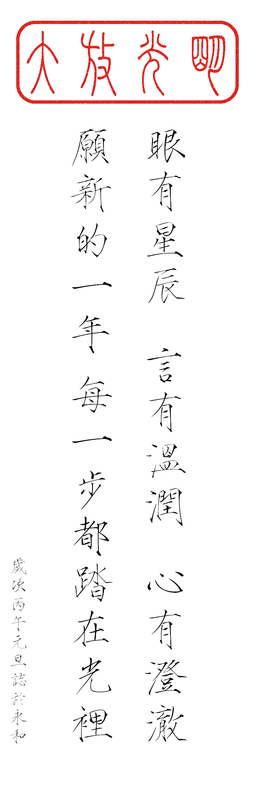 大放光明
眼有星辰 言有溫潤 心有澄澈
願新的一年每一步都踏在光裡
歲次丙午元旦誌於永和